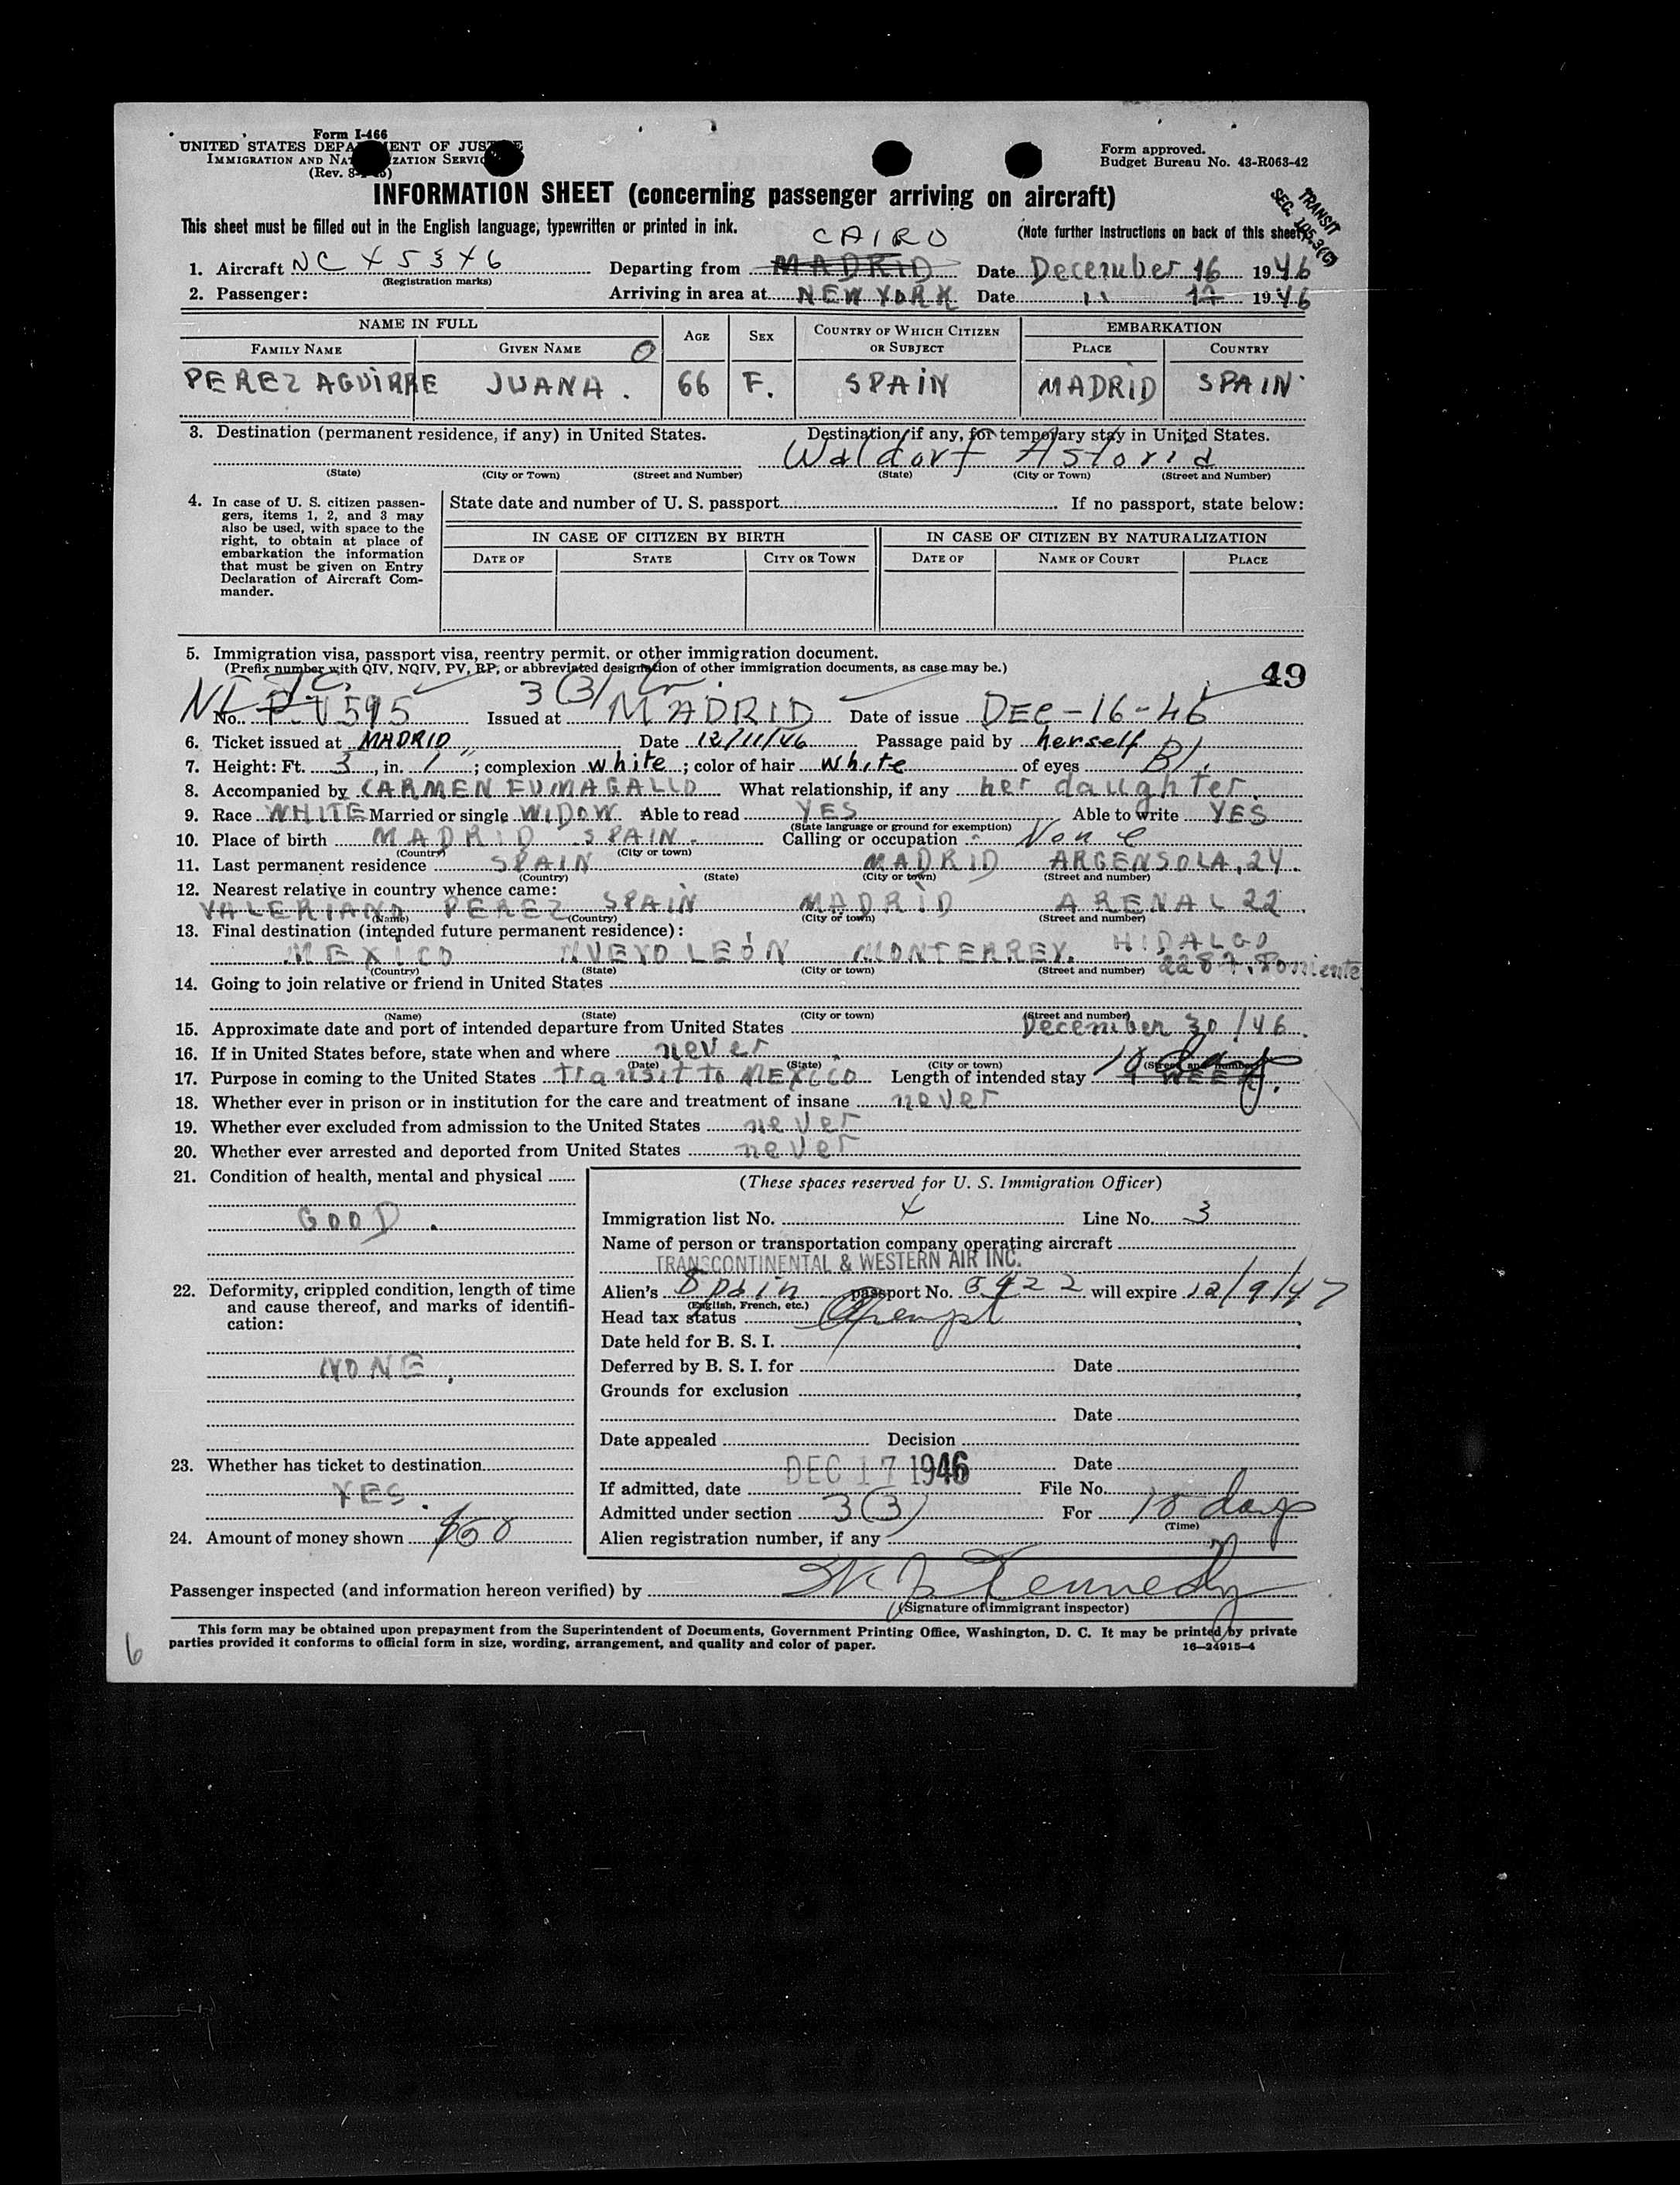 Form I-466
UNITED STATES DEPARTMENT OF JUSTICE
IMMIGRATION AND NATURALIZATION SERVICE
(Rev. 8-
Form approved.
Budget Bureau No. 43-R063-42
INFORMATION SHEET (concerning passenger arriving on aircraft)
TRANSIT
SEC. 105.3(C)
This sheet must be filled out in the English language, typewritten or printed in ink.
(Note further instructions on back of this sheet)
CAIRO
1. Aircraft NC 45346 Departing from MADRID Date December 16 1946
(Registration marks)
2. Passenger: Arriving in area at NEW YORK Date " 17 1946
NAME IN FULL AGE SEX COUNTRY OF WHICH CITIZEN OR SUBJECT EMBARKATION
FAMILY NAME GIVEN NAME PLACE COUNTRY
PEREZ AGUIRRE JUANA. 66 F. SPAIN MADRID SPAIN
3. Destination (permanent residence, if any) in United States. Destination, if any, for temporary stay in United States.
Waldorf Astoria
(State) (City or Town) (Street and Number) (State) (City or Town) (Street and Number)
4. In case of U. S. citizen passengers, items 1, 2, and 3 may also be used, with space to the right, to obtain at place of embarkation the information that must be given on Entry Declaration of Aircraft Commander.
State date and number of U. S. passport If no passport, state below:
IN CASE OF CITIZEN BY BIRTH IN CASE OF CITIZEN BY NATURALIZATION
DATE OF STATE CITY OR TOWN DATE OF NAME OF COURT PLACE
5. Immigration visa, passport visa, reentry permit, or other immigration document.
(Prefix number with QIV, NQIV, PV, RP, or abbreviated designation of other immigration documents, as case may be.)
49
3(3)
No. P.V 595 Issued at MADRID Date of issue DEC-16-46
6. Ticket issued at MADRID Date 12/11/46 Passage paid by herself
7. Height: Ft. 3, in. 1; complexion white; color of hair white of eyes Bl.
8. Accompanied by CARMEN FUMAGALLO What relationship, if any her daughter.
9. Race WHITE Married or single WIDOW Able to read YES Able to write YES
(State language or ground for exemption)
10. Place of birth MADRID SPAIN Calling or occupation None
(Country) (City or town)
11. Last permanent residence SPAIN MADRID ARGENSOLA, 24.
(Country) (State) (City or town) (Street and number)
12. Nearest relative in country whence came:
VALERIANO PEREZ SPAIN MADRID ARENAL 22.
(Name) (Country) (City or town) (Street and number)
13. Final destination (intended future permanent residence):
MEXICO NUEVO LEÓN MONTERREY. HIDALGO
2287. Poniente
(Country) (State) (City or town) (Street and number)
14. Going to join relative or friend in United States
(Name) (State) (City or town) (Street and number)
15. Approximate date and port of intended departure from United States December 30/46.
16. If in United States before, state when and where never
(Date) (State) (City or town) (Street and number)
17. Purpose in coming to the United States Transit to MEXICO Length of intended stay 1 WEEK 10 days.
18. Whether ever in prison or in institution for the care and treatment of insane never
19. Whether ever excluded from admission to the United States never
20. Whether ever arrested and deported from United States never
21. Condition of health, mental and physical
GOOD.
22. Deformity, crippled condition, length of time and cause thereof, and marks of identification:
NONE.
23. Whether has ticket to destination
YES.
24. Amount of money shown $60
(These spaces reserved for U. S. Immigration Officer)
Immigration list No. 4 Line No. 3
Name of person or transportation company operating aircraft
TRANSCONTINENTAL & WESTERN AIR INC.
Alien's Spain passport No. 5922 will expire 12/9/47
(English, French, etc.)
Head tax status Exempt
Date held for B. S. I.
Deferred by B. S. I. for Date
Grounds for exclusion
Date
Date appealed Decision
Date
DEC 17 1946
If admitted, date File No.
Admitted under section 3(3) For 10 days
(Time)
Alien registration number, if any
Passenger inspected (and information hereon verified) by Kennedy
(Signature of immigrant inspector)
This form may be obtained upon prepayment from the Superintendent of Documents, Government Printing Office, Washington, D. C. It may be printed by private
parties provided it conforms to official form in size, wording, arrangement, and quality and color of paper. 16—24915-4
6